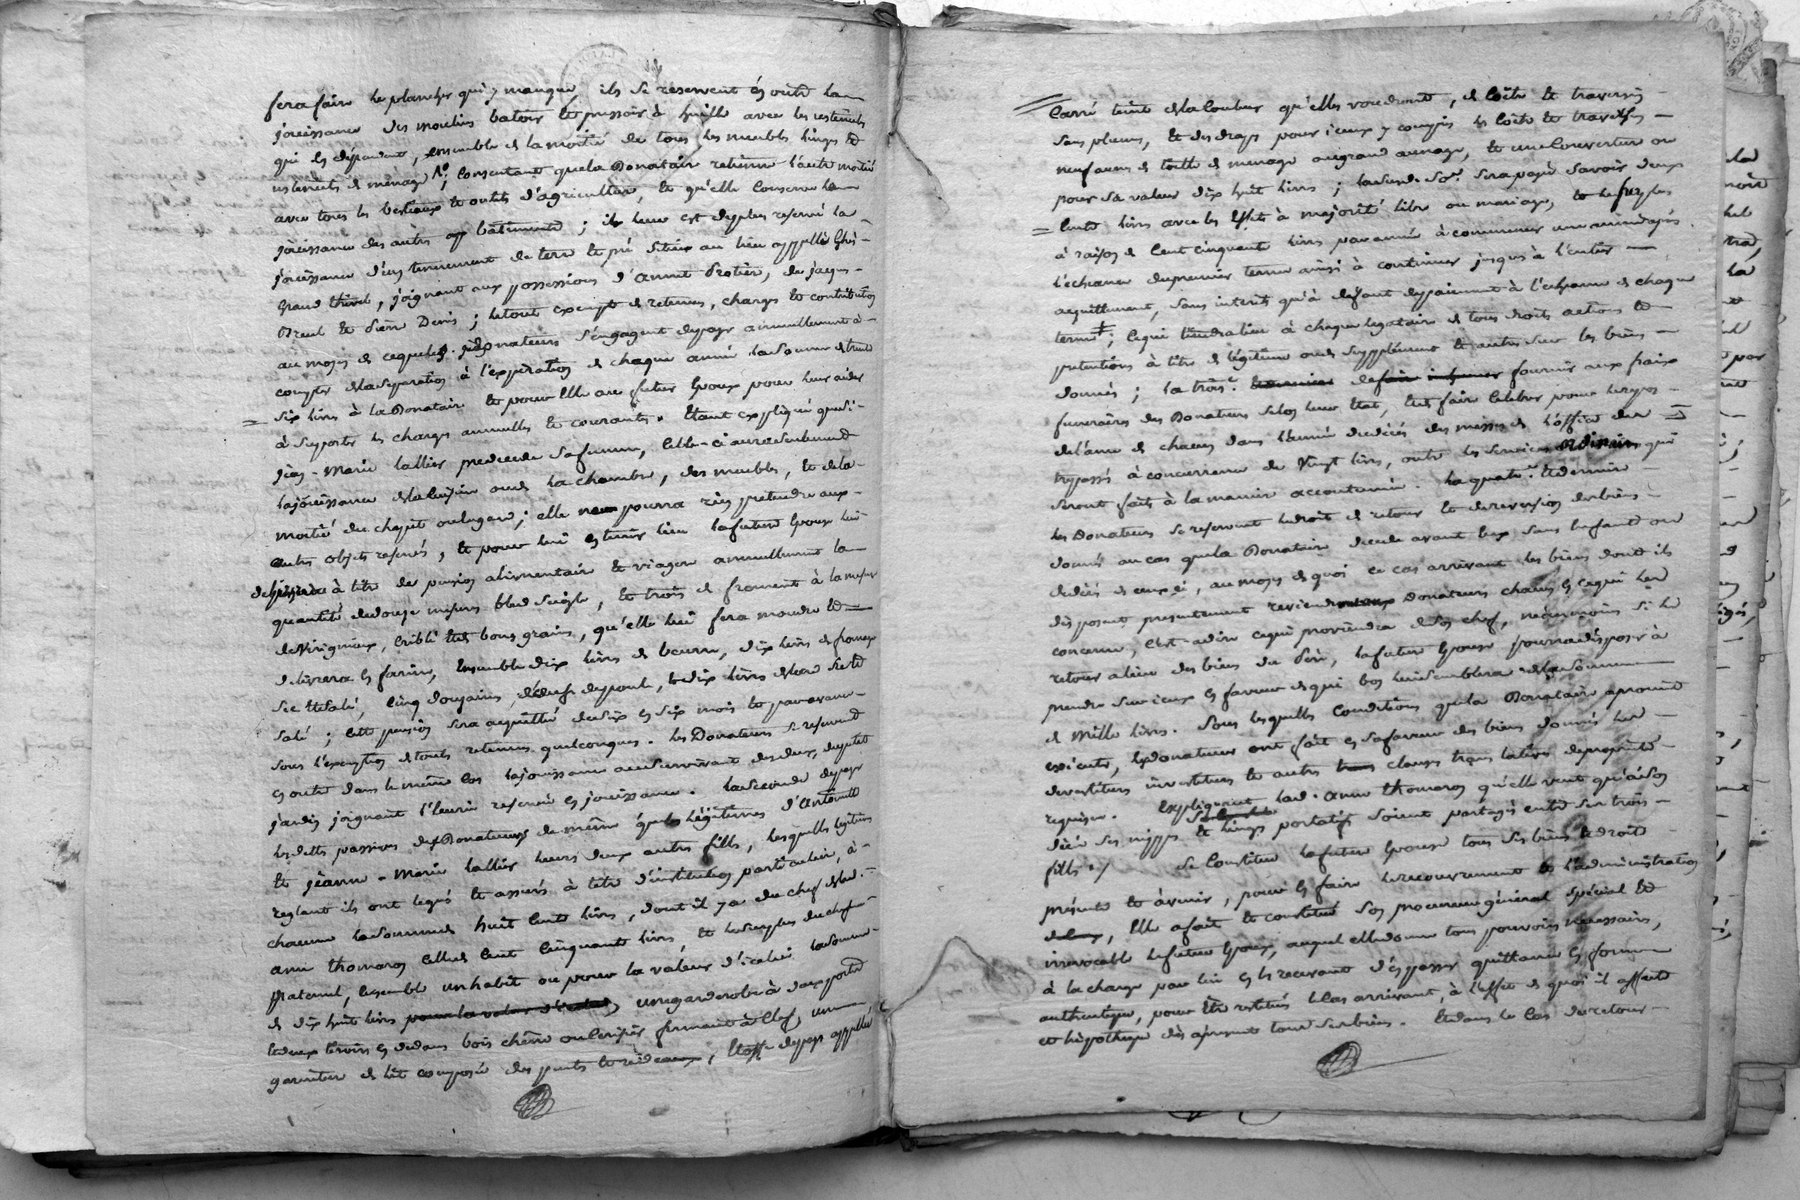 fera faire les planchers qui y manquent, ils se reservent en outre la
jouissance des moulins batoir et pressoir à huille avec les ustensils
qui en dépendent, ensemble de la moitié de tous les meubles linges et
ustensils de menage; consentant que la Donataire retienne l'autre moitié
avec tous les bestiaux et outils d'agriculture, et qu'elle conserve la
joüissance des autres batiments; il leur est de plus reservé la
joüissance d'un tennement de terre et pré situés au lieu appellé
Grand, joignant aux possessions d'annet Protière, de jaques
Breul et Pierre Denis; le tout exempt de retenues, charges et contributions
au moyen de ce que les Donateurs s'engagent de payer annuellement à
compter de la separation à l'expiration de chaque année la somme de trente
six livres à la Donataire et pour elle au futur epoux pour leur aider
à supporter les charges annuelles et courantes. Etant expliqué que si
jean-Marie Lallier predecede sa femme, celle-ci aura seulement
la joüissance de la cuisine ou de la chambre, des meubles, et de la
moitié du; elle ne pourra rien pretendre aux
autres objets reservés, et pour lui en tenir lieu la future epouse lui
delivrera à titre de pension alimentaire et viagere annuellement la
quantité de douze mesures bled seigle, et trois de froment à la mesure
de Virignieux, criblé et bons grains, qu'elle lui fera moudre et
delivrera en farine, ensemble dix livres de beurre, dix livres de fromage
sec et salé, cinq douzaines d'œufs de poule, et dix livres de lard
salé; cette pension sera acquittée de six en six mois et par avance
sous l'exemption de toute retenue quelconque. Les Donateurs se reservent
en outre dans le même cas la joüissance au survivant des deux, du petit
jardin joignant l'écurie reservée en jouissance. La seconde de payer
les dettes passives des Donateurs de même que les légitimes d'antoinette
et jeanne-Marie Lallier leurs deux autres filles, lesquelles legitimes
reglant ils ont legué et assuré à titre d'institution particuliere, à
chacune la somme de huit cent livres, dont il y a du chef de lad.
anne thomaron celle de cent cinquante livres, et le surplus du chef
Paternel, ensemble un habit ou pour la valeur d'icelui la somme
de dix huit livres pour la valeur d'icelui, une garderobe à deux portes
et deux tiroirs en dedans bois chêne ou cerisier fermant à clef, une
garniture de lit composée des pentes et rideaux, etoffe de pays appellée
carré teint de la couleur qu'elles voudront, de coëte et traversin
sans plume, et des draps pour iceux y compris les coëte et traversin
neuf aunes de toille de menage au grand aunage, et une couverture ou
pour sa valeur dix huit livres; la susd. Some sera payée savoir deux
cents livres avec les effets à majorité libre ou mariage, et le surplus
à raison de cent cinquante livres par année à commencer une année après
l'echeance du premier terme ainsi à continuer jusques à l'entier
acquittement, sans interets qu'à defaut de paiement à l'echeance de chaque
terme; ce qui tiendra lieu à chaque legataire de tous droits actions et
pretentions à titre de légitime ou de supplément et autres sur les biens
donnés; la trois.e de faire inhumer fournir aux fraix
funeraires des Donateurs selon leur etat, et de faire celebrer pour le repos
de l'ame de chacun dans l'année du decès des messes de l'office des
trepassés à concurrence de vingt livres, outre les services ordinaires qui
seront faits à la maniere accoutumée. La quatr.e et derniere
les Donateurs se reservent le droit de retour et de reversion des biens
donnés au cas que la Donataire decede avant eux sans enfans ou
decedés ceux ci, au moyen de quoi ce cas arrivant les biens dont ils
disposent presentement reviendront aux Donateurs chacun en ce qui les
concerne, c'est-adire ce qui proviendra de son chef, neanmoins si le
retour a lieu des biens du Pere, la future epouse pourra disposer à
prendre sur iceux en faveur de qui bon lui semblera de la somme
de mille livres. Sous lesquelles conditions que la Donataire a promis
executer, les donateurs ont fait en sa faveur des biens donnés les
devestitures investitures et autres clauses translatives de propriété
requises. Expliquant lad. anne thomaron qu'elle veut qu'à son
décès ses nippes et linges portatifs soient partagés entre ses trois
filles./ Se constitue la future epouse tous ses biens et droits
présents et àvenir, pour en faire le recouvrement et l'administration
, elle a fait et constitué son procureur général spécial et
irrevocable le futur epoux, auquel elle donne tous pouvoirs necessaires,
à la charge par lui en les recevant d'en passer quittance en forme
authentique, pour être restitués le cas arrivant, à l'effet de quoi il affecte
et hipotheque dès àpresent tous ses biens. Et dans le cas de retour